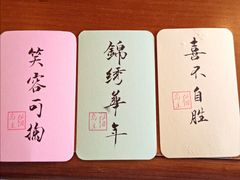 笑容可掬
錦绣華年
喜不自胜